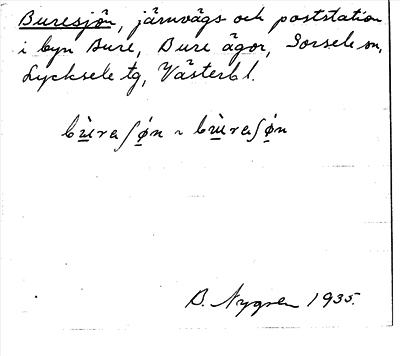 Buresjön, järnvägs- och poststation
i byn Bure, Bure ägor, Sorsele sn,
Lycksele tg, Västerb. l.
bùraʃǿn ~ bùraʃǿn
B. Nygren 1935.